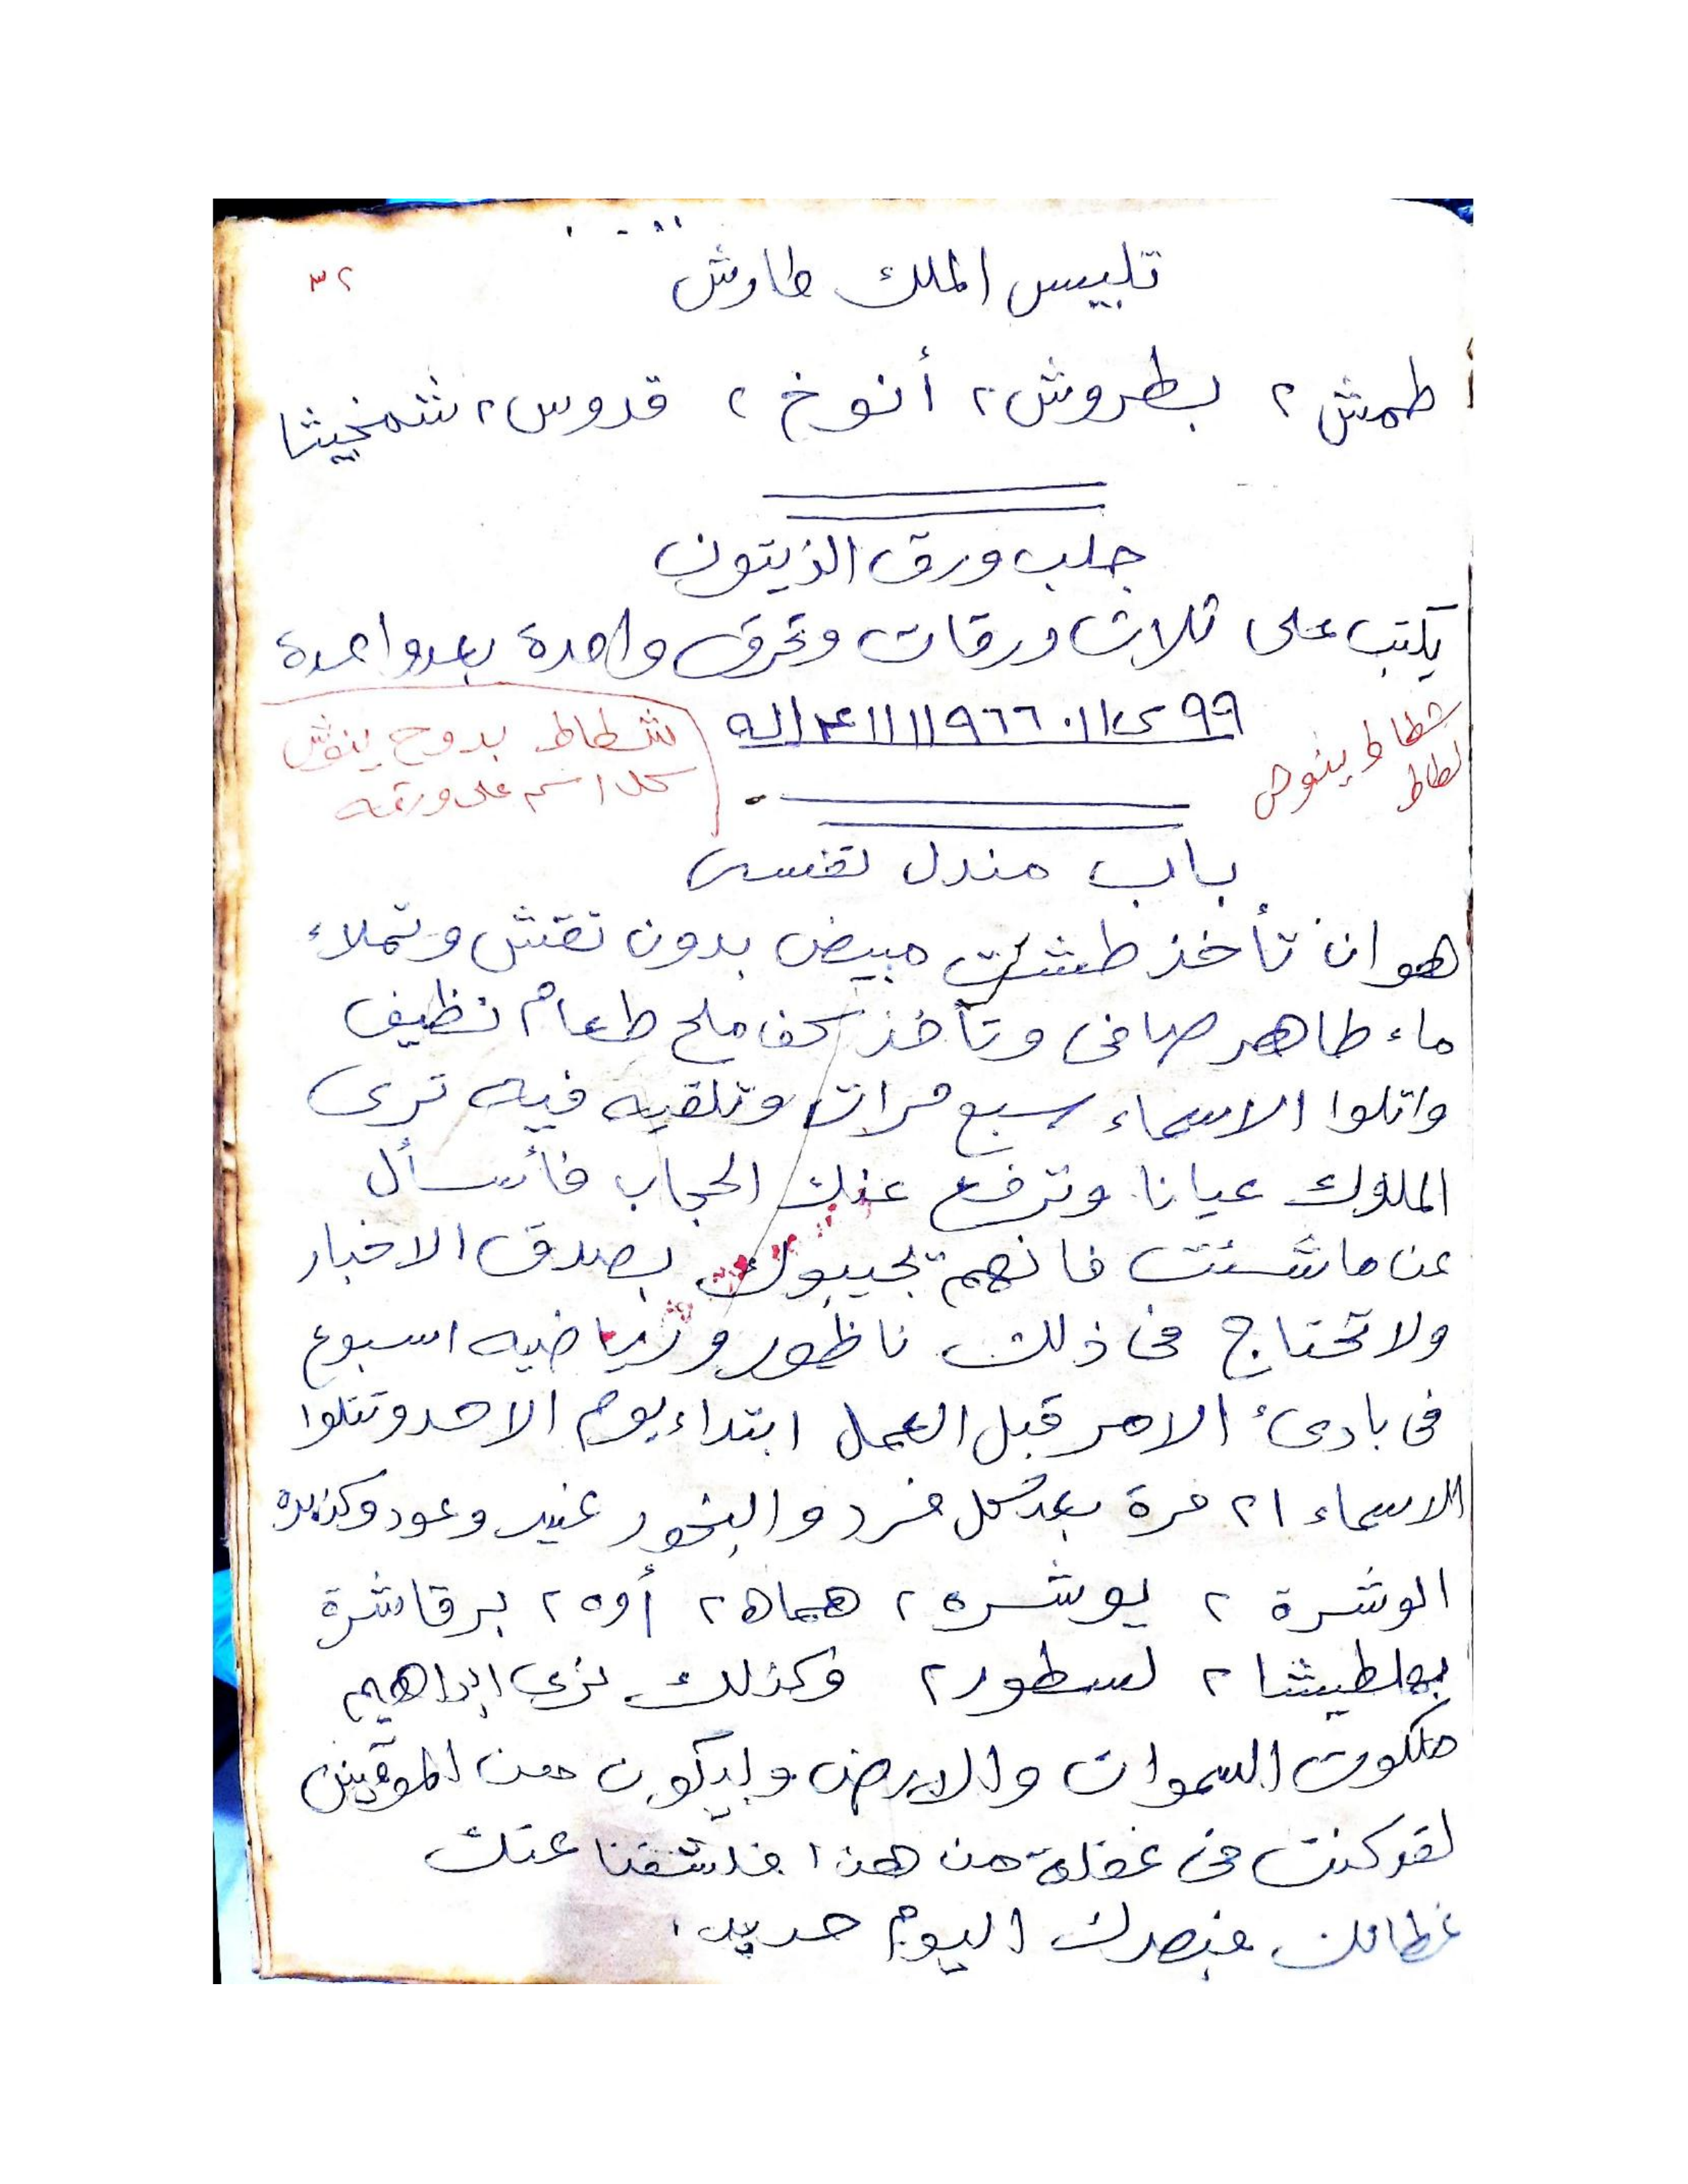 تلبيس الملك طارش
٣٢
طمش ٢ بطروش ٢ أنوخ ٢ قدوس ٢ شمخيثا
جلب ورق الذيتون
يكتب على ثلاث ورقات وتحرق واحدة بعد واحدة
شطاط بدوح ينوش
كل اسم على ورقه
شطاط ينوش
لطاط
باب مندل نفسى
هو ان تأخذ طشت مبيض بدون نقش وتملاء
ماء طاهر صافى وتأخذ كف ملح طعام نظيف
واتلوا الاسماء سبع مرات وتلقيه فيه ترى
الملوك عيانا وترفع عنك الحجاب فأسأل
عن ما شئت فانهم تجيبوك بصدق الاخبار
ولا تحتاج فى ذلك ناظور ورياضيه اسبوع
فى بادىء الامر قبل العمل ابتداء يوم الاحد وتتلوا
الاسماء ٢١ مرة بعد كل فرد والبخور عنبر وعود وكزبره
الوشرة ٢ يوشره ٢ هماه ٢ أوه ٢ برقاشرة
بهلطيشا ٢ لسطور ٢ وكذلك نرى ابراهيم
ملكوت السموات والارض وليكون من الموقنين
لقد كنت فى غفلة من هذا فكشفنا عنك
غطائك فبصرك اليوم حديد